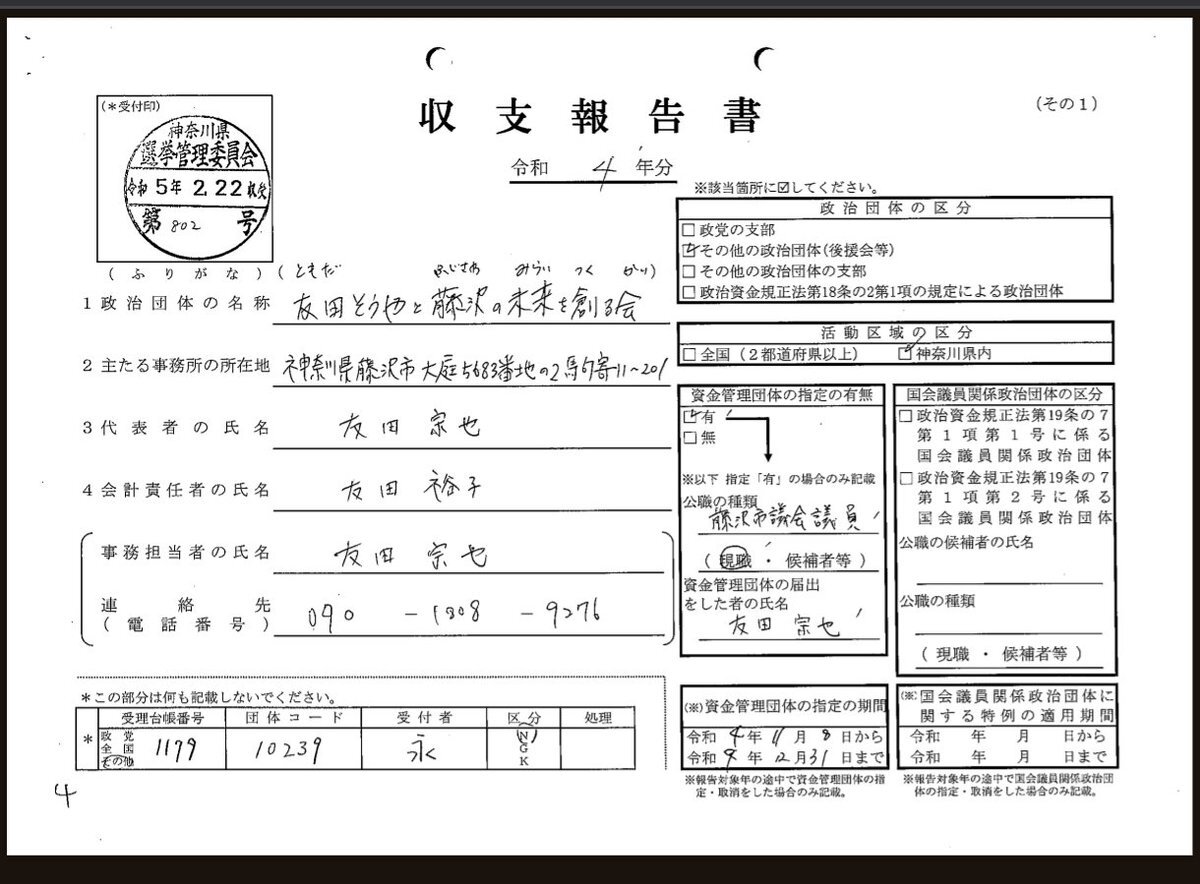 収支報告書
(その1)
令和 4 年分
(*受付印)
神奈川県
選挙管理委員会
令和 5年 2.22 収受
第 802 号
※該当箇所に☑してください。
政治団体の区分
□政党の支部
☑その他の政治団体(後援会等)
□その他の政治団体の支部
□政治資金規正法第18条の2第1項の規定による政治団体
活動区域の区分
□全国(2都道府県以上) ☑神奈川県内
(ふりがな) (ともだ ふじさわ みらい つく かい)
1 政治団体の名称 友田そうやと藤沢の未来を創る会
2 主たる事務所の所在地 神奈川県藤沢市大庭5683番地の2馬的寄11~201
3 代表者の氏名 友田 宗也
4 会計責任者の氏名 友田 裕子
事務担当者の氏名 友田 宗也
連絡先
(電話番号) 090-1808-9276
資金管理団体の指定の有無
☑有
□無
※以下 指定「有」の場合のみ記載
公職の種類
藤沢市議会議員
(現職・候補者等)
資金管理団体の届出
をした者の氏名
友田 宗也
国会議員関係政治団体の区分
□政治資金規正法第19条の7
第1項第1号に係る
国会議員関係政治団体
□政治資金規正法第19条の7
第1項第2号に係る
国会議員関係政治団体
公職の候補者の氏名
公職の種類
(現職・候補者等)
*この部分は何も記載しないでください。
受理台帳番号 団体コード 受付者 区分 処理
* 政党 全国 その他 1179 10239 永 N G K
(※)資金管理団体の指定の期間
令和 4年 11月 8日から
令和 9年 12月 31日まで
※報告対象年の途中で資金管理団体の指
定・取消をした場合のみ記載。
(※)国会議員関係政治団体に
関する特例の適用期間
令和 年 月 日から
令和 年 月 日まで
※報告対象年の途中で国会議員関係政治団
体の指定・取消をした場合のみ記載。
4